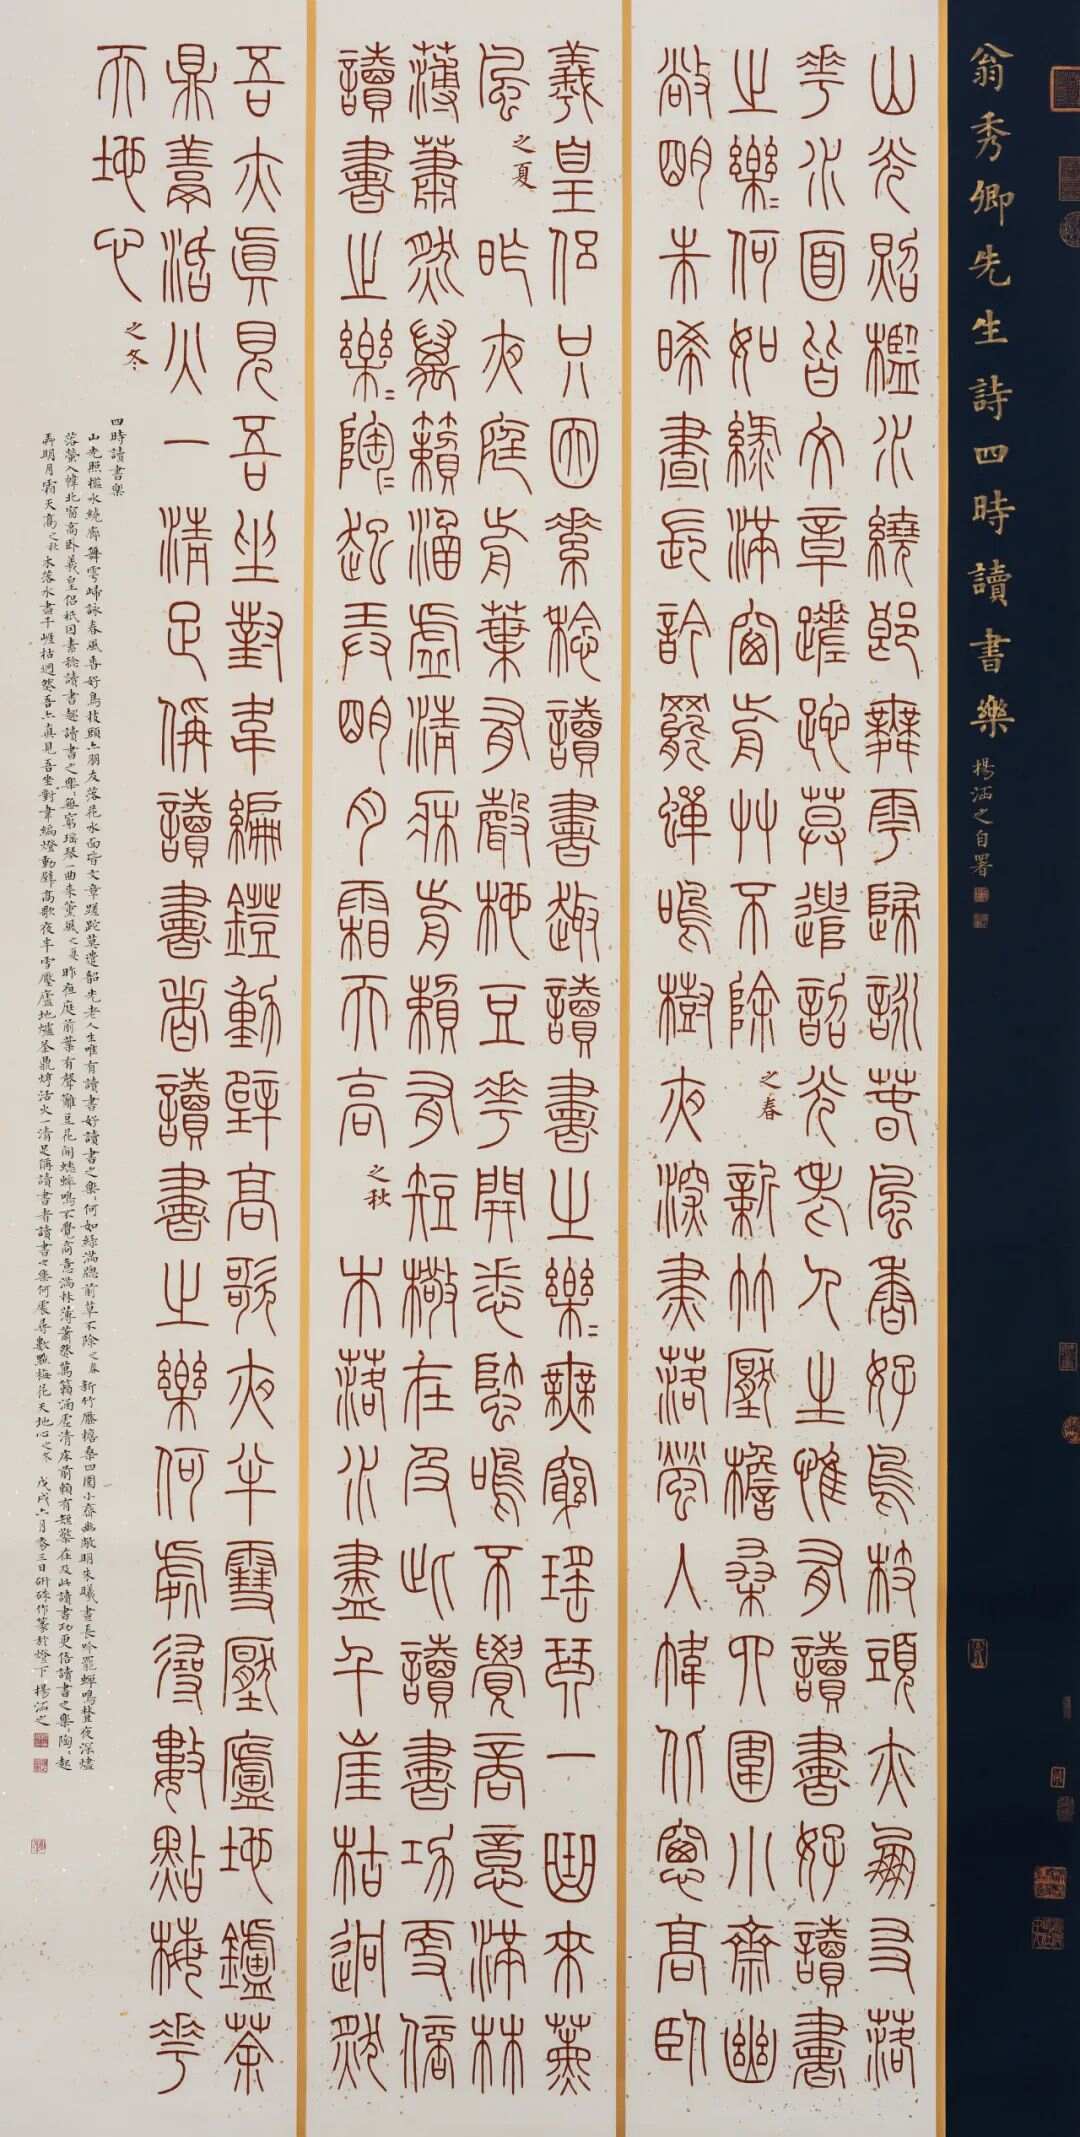 翁秀卿先生詩四時讀書樂 楊涵之自署
山光照檻水繞廊舞雩歸詠春風香好鳥枝頭亦朋友落
花水面皆文章蹉跎莫遣韶光老人生惟有讀書好讀書
之樂〻何如綠滿窗前艸不除 之春 新竹壓檐桑四圍小齋幽
敞明朱曦晝長吟罷蟬鳴樹夜深燼落螢入幃北窗高臥
羲皇侶只因素稔讀書趣讀書之樂〻無窮瑤琴一曲來薰
風 之夏 昨夜庭前葉有聲籬豆花開蟋蟀鳴不覺商意滿林
薄蕭然萬籟涵虛清牀前賴有短檠在及此讀書功更倍
讀書之樂〻陶〻起弄明月霜天高 之秋 木落水盡千崖枯迥然
吾亦真見吾坐對韋編鐙動壁高歌夜半雪壓廬地鑪茶
鼎烹活火一清足稱讀書者讀書之樂何處尋數點梅花
天地心 之冬
四時讀書樂
山光照檻水繞廊舞雩歸詠春風香好鳥枝頭亦朋友落花水面皆文章蹉跎莫遣韶光老人生唯有讀書好讀書之樂〻何如綠滿牕前草不除 之春 新竹壓檐桑四圍小齋幽敞明朱曦晝長吟罷蟬鳴樹夜深燼
落螢入幃北窗高臥羲皇侶祇因素稔讀書趣讀書之樂〻無窮瑤琴一曲來薰風 之夏 昨夜庭前葉有聲籬豆花開蟋蟀鳴不覺商意滿林薄蕭然萬籟涵虛清床前賴有短檠在及此讀書功更倍讀書之樂〻陶〻起
弄明月霜天高 之秋 木落水盡千崖枯迥然吾亦真見吾坐對韋編燈動壁高歌夜半雪壓廬地爐茶鼎烹活火一清足稱讀書者讀書之樂何處尋數點梅花天地心 之冬 戊戌六月三日研硃作篆於燈下楊涵之